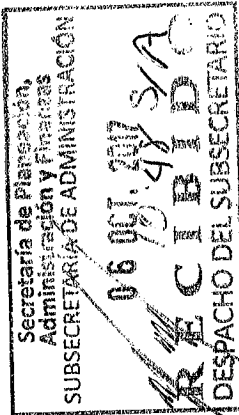 Secretaría de Planeación,
Administración y Finanzas
SUBSECRETARÍA DE ADMINISTRACIÓN
06 OCT. 2017
48 S/A
RECIBIDO
DESPACHO DEL SUBSECRETARIO